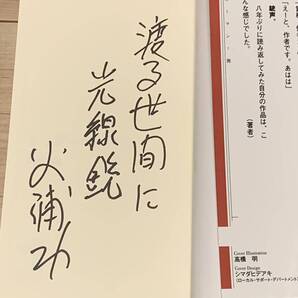 渡る世間に
光線銃
火浦功
「えーと、作者です。あはは」
銃声。
八年ぶりに読み返してみた自分の作品は、こ
んな感じでした。
(著者)
Cover Illustration
高橋 明
Cover Design
シマダヒデアキ
(ローカル・サポート・デパートメント)